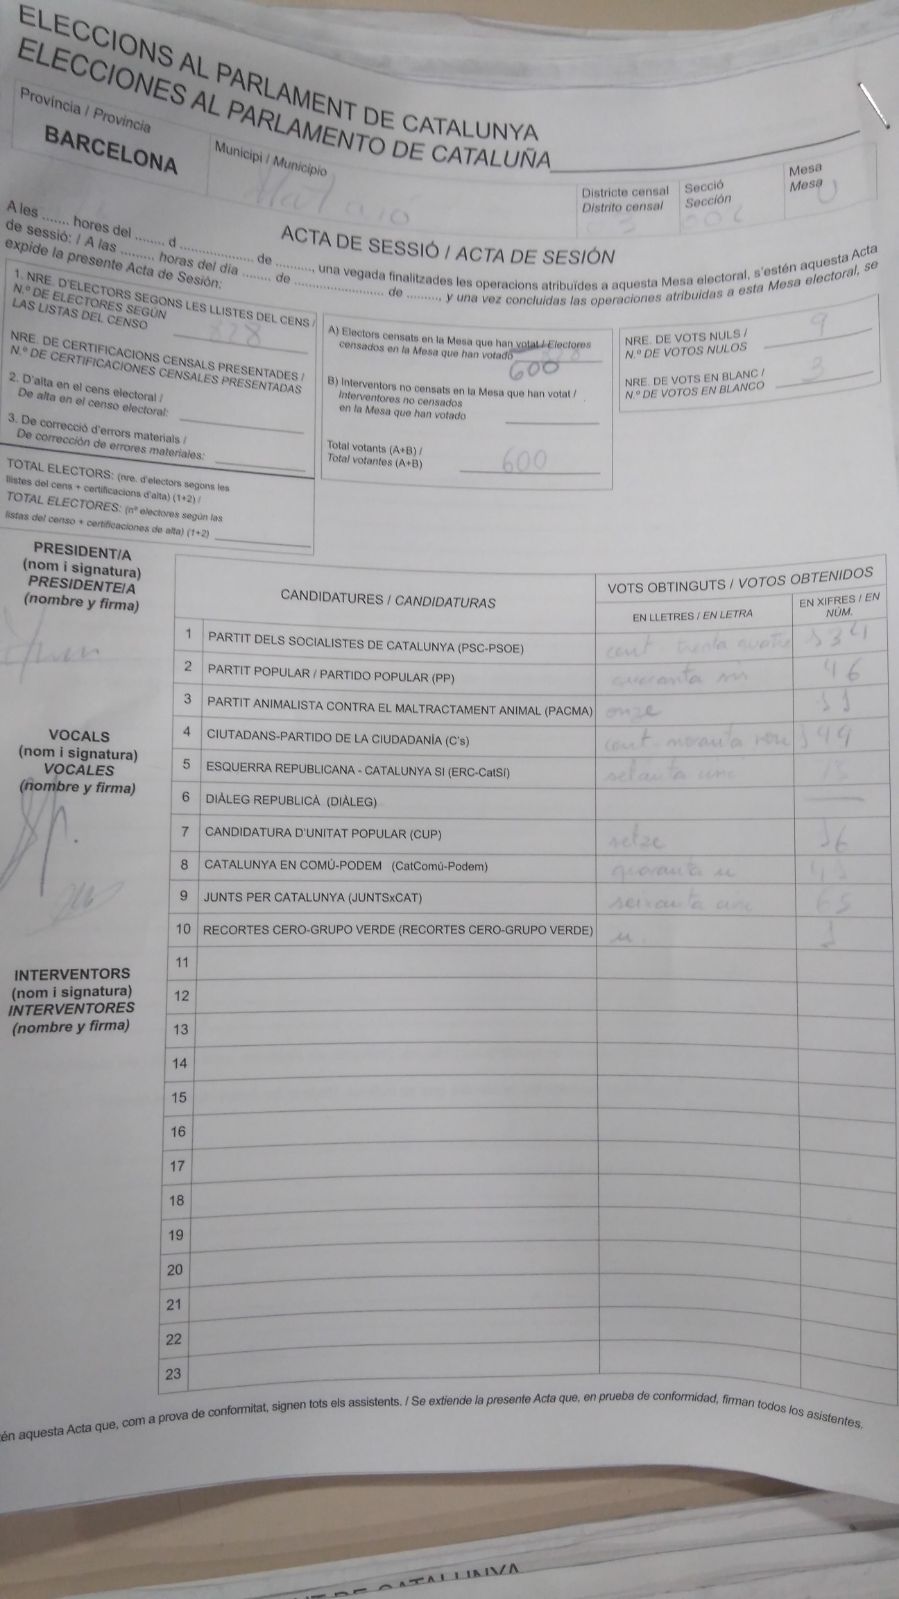 ELECCIONS AL PARLAMENT DE CATALUNYA
ELECCIONES AL PARLAMENTO DE CATALUÑA
Província / Provincia
BARCELONA
Municipi / Municipio
Mataró
Districte censal
Distrito censal
Secció
Sección
Mesa
Mesa
U
ACTA DE SESSIÓ / ACTA DE SESIÓN
A les ....... hores del ....... d .................. de ........., una vegada finalitzades les operacions atribuïdes a aquesta Mesa electoral, s'estén aquesta Acta
de sessió: / A las ......... horas del día ....... de ...................... de ........, y una vez concluidas las operaciones atribuidas a esta Mesa electoral, se
expide la presente Acta de Sesión:
1. NRE. D'ELECTORS SEGONS LES LLISTES DEL CENS /
N.º DE ELECTORES SEGÚN
LAS LISTAS DEL CENSO
828
NRE. DE CERTIFICACIONS CENSALS PRESENTADES /
N.º DE CERTIFICACIONES CENSALES PRESENTADAS
2. D'alta en el cens electoral /
De alta en el censo electoral:
3. De correcció d'errors materials /
De corrección de errores materiales:
TOTAL ELECTORS: (nre. d'electors segons les
llistes del cens + certificacions d'alta) (1+2) /
TOTAL ELECTORES: (nº electores según las
listas del censo + certificaciones de alta) (1+2)
A) Electors censats en la Mesa que han votat / Electores
censados en la Mesa que han votado
600
B) Interventors no censats en la Mesa que han votat /
Interventores no censados
en la Mesa que han votado
Total votants (A+B) /
Total votantes (A+B)
600
NRE. DE VOTS NULS /
N.º DE VOTOS NULOS
9
NRE. DE VOTS EN BLANC /
N.º DE VOTOS EN BLANCO
3
PRESIDENT/A
(nom i signatura)
PRESIDENTE/A
(nombre y firma)
VOCALS
(nom i signatura)
VOCALES
(nombre y firma)
INTERVENTORS
(nom i signatura)
INTERVENTORES
(nombre y firma)
CANDIDATURES / CANDIDATURAS
VOTS OBTINGUTS / VOTOS OBTENIDOS
EN LLETRES / EN LETRA
EN XIFRES / EN NÚM.
1 PARTIT DELS SOCIALISTES DE CATALUNYA (PSC-PSOE) cent trenta quatre 134
2 PARTIT POPULAR / PARTIDO POPULAR (PP) quaranta sis 46
3 PARTIT ANIMALISTA CONTRA EL MALTRACTAMENT ANIMAL (PACMA) onze 11
4 CIUTADANS-PARTIDO DE LA CIUDADANÍA (C's) cent noranta nou 199
5 ESQUERRA REPUBLICANA - CATALUNYA SI (ERC-CatSí) setanta cinc 75
6 DIÀLEG REPUBLICÀ (DIÀLEG)
7 CANDIDATURA D'UNITAT POPULAR (CUP) setze 16
8 CATALUNYA EN COMÚ-PODEM (CatComú-Podem) quaranta u 41
9 JUNTS PER CATALUNYA (JUNTSxCAT) seixanta cinc 65
10 RECORTES CERO-GRUPO VERDE (RECORTES CERO-GRUPO VERDE) u. 1
11
12
13
14
15
16
17
18
19
20
21
22
23
tén aquesta Acta que, com a prova de conformitat, signen tots els assistents. / Se extiende la presente Acta que, en prueba de conformidad, firman todos los asistentes.
DE CATALUNYA